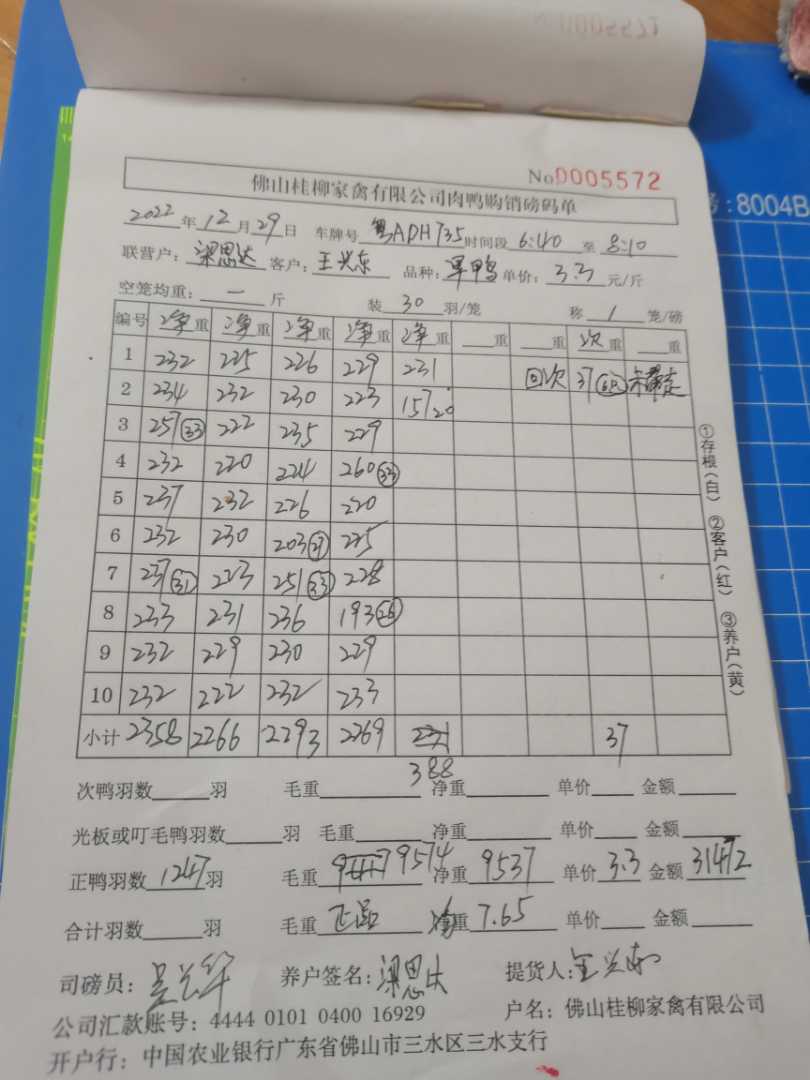 No 0005572
佛山桂柳家禽有限公司肉鸭购销磅码单
2022年12月29日 车牌号 粤ADH735 时间段 6:40 至 8:10
联营户: 梁思达 客户: 王兴东 品种: 单价: 3.3 元/斤
空笼均重: 一 斤 装 30 羽/笼 称 1 笼/磅
编号 净重 净重 净重 净重 净重 重 重 次重 重
1 232 225 226 229 231 回次 37
2 234 232 230 223 157 20
3 257 33 222 235 229
4 232 220 224 260 33
5 237 232 226 220
6 232 230 203 27 225
7 237 31 223 251 33 228
8 233 231 236 193 26
9 232 229 230 229
10 232 222 232 233
小计 2358 2266 2293 2269 37
388
次鸭羽数 羽 毛重 净重 单价 金额
光板或叮毛鸭羽数 羽 毛重 净重 单价 金额
正鸭羽数 1247 羽 毛重 9574 净重 9537 单价 3.3 金额 31472
合计羽数 羽 毛重 正品 净重 7.65 单价 金额
司磅员: 养户签名: 梁思达 提货人: 王兴东
公司汇款账号: 4444 0101 0400 16929 户名: 佛山桂柳家禽有限公司
开户行: 中国农业银行广东省佛山市三水区三水支行
①存根(白) ②客户(红) ③养户(黄)
8004B